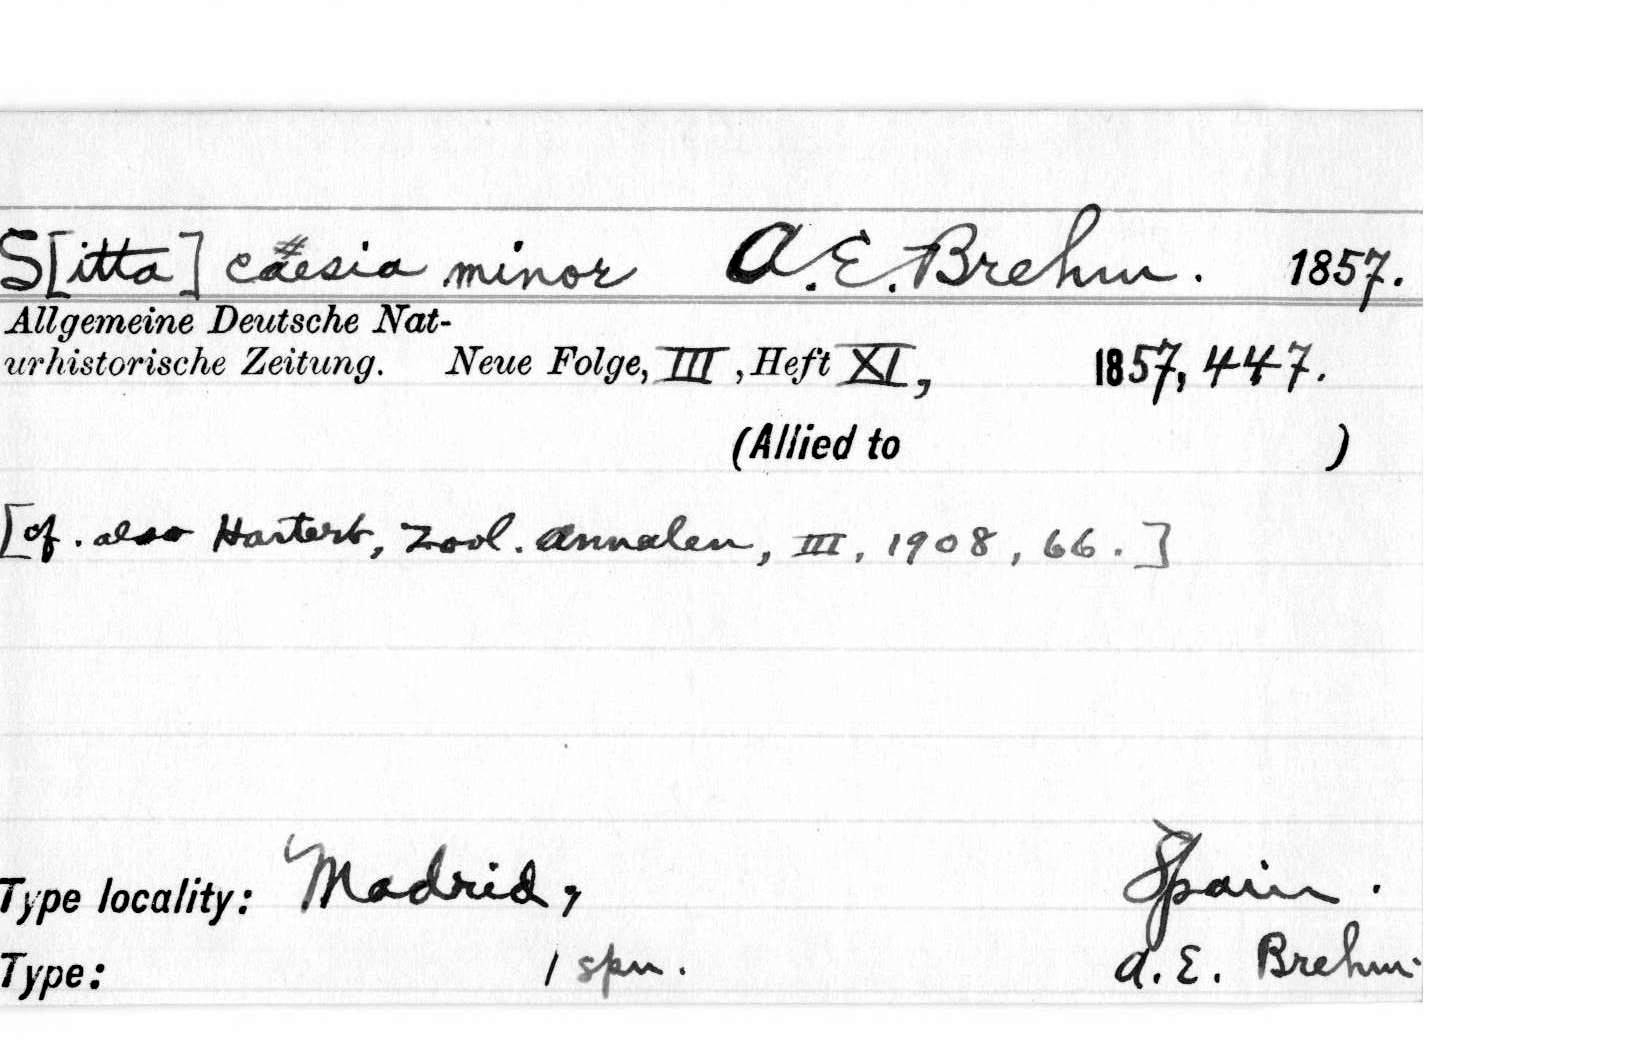 S[itta] caesia minor A. E. Brehm. 1857.
Allgemeine Deutsche Nat-
urhistorische Zeitung. Neue Folge, III, Heft XI, 1857, 447.
(Allied to )
[cf. also Hartert, Zool. Annalen, III, 1908, 66.]
Type locality: Madrid, Spain.
Type: 1 spn. A. E. Brehm.